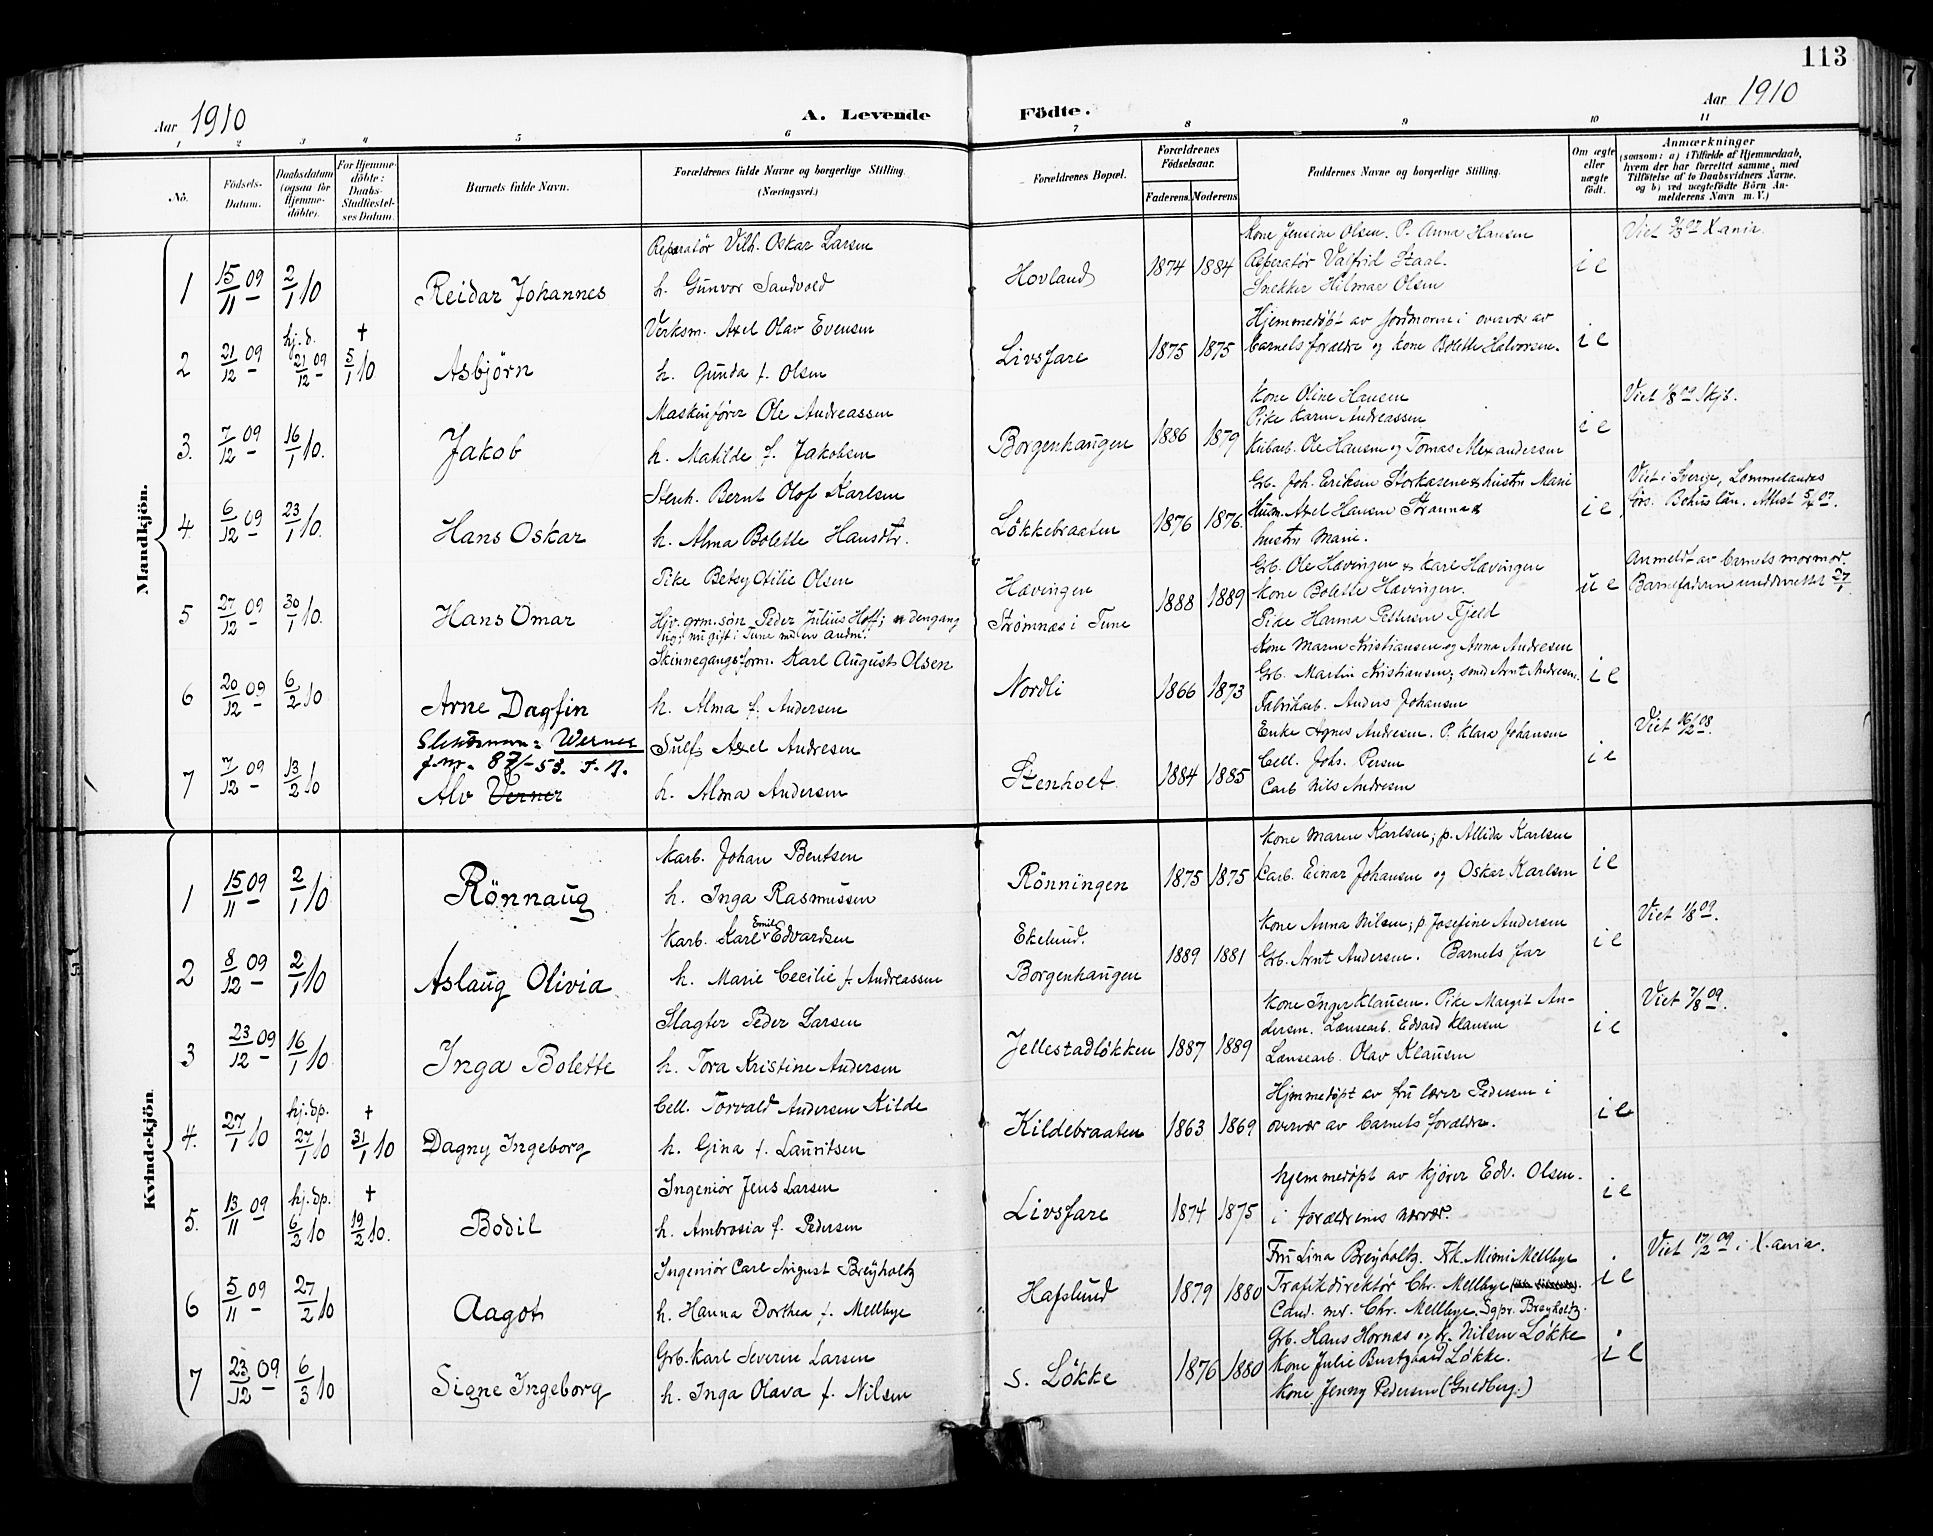 113
Aar 1910
A. Levende Födte.
Aar 1910
1 2 3 4 5 6 7 8 9 10 11
No.
Födsels-Datum.
Daabsdatum (ogsaa for Hjemme-döbte).
For Hjemme-döbte: Daabs-Stadfæstel-ses Datum.
Barnets fulde Navn.
Forældrenes fulde Navne og borgerlige Stilling.
(Næringsvei.)
Forældrenes Bopæl.
Forældrenes Födselsaar.
Faderens. Moderens.
Faddernes Navne og borgerlige Stilling.
Om ægte eller uægte födt.
Anmærkninger
(saasom: a) i Tilfælde af Hjemmedaab, hvem der har forrettet samme, med Tilföielse af to Daabsvidners Navne, og b) ved uægtefödte Börn An-melderens Navn m. V.)
Mandkjön.
Reparatør Vilh. Oskar Larsen
Kone Jensine Olsen. P. Anna Hansen
Viet X.ania.
1 15/11 09 2/1 10 Reidar Johannes h. Gunvor Sandvold Hovland 1874 1884 Reparatør Valfrid Staal. i e
Snekker Hilmar Olsen
hj.d. †
Verksm. Axel Olav Evensen
Hjemmedøpt av Jordmoren i overvær av
2 21/12 09 21/12 09 5/1 10 Asbjörn h. Gunda f. Olsen Livsfare 1875 1875 barnets forældre og kone Bolette Halvorsen. i e
Maskinfører Ole Andreassen
Kone Oline Hansen
Viet 1/8 09 Skjb.
3. 7/12 09 16/1 10. Jakob h. Matilde f. Jakobsen Borgenhaugen 1886 1879 Pike Karen Andreassen i e
Ole Hansen og Tomas Alexandersen
Stenh. Bernt Olof Karlsen
Grb. Joh. Eriksen Storkasene & hustru Marie
Viet i Sverige, Lommelandes
4. 6/12 09 23/1 10. Hans Oskar h. Alma Bolette Hansdtr. Løkkebraaten 1876 1876. Husm. Axel Hansen i e
hustru Marie.
förs. Behus län. Attest 5/4 07.
Pike Betsy Otilie Olsen
Grb. Ole Hævingen & Karl Hævingen
Anmeldt av barnets mormor.
5 27/12 09 30/1 10. Hans Omar Hævingen 1888 1889 Kone Bolette Hævingen. u e
Barnefaderen underrettet 27/1
Hjv. grm. søn Peder Julius Hoff; dengang
ug., nu gift i Tune med en anden.
Strømnes i Tune
Pike Hanna Pettersen Fjeld
Skinnegangsform. Karl August Olsen
Kone Maren Kristiansen og Anna Andresen
6 20/12 09 6/2 10 Arne Dagfin h. Alma f. Andersen Nordli 1866 1873 Grb. Martin Kristiansen; Arnt Andresen. i e
Fabrikarb. Anders Johansen
Slektsnavn: Werner
j.nr. 87/-53. T.N.
Sulf. Axel Andresen
Enke Agnes Andresen. P. Klara Johansen
Viet 16/2 08.
7 7/12 09 13/2 10 Alv Verner h. Alma Andersen Stenholt 1884 1885 Cell. Johs. Persen i e
Carb Nils Andresen
Kvindekjön.
Karb. Johan Bentsen
Kone Maren Karlsen; p. Allida Karlsen
1 15/11 09 2/1 10 Rönnaug h. Inga Rasmussen Rönningen 1875 1875 Carb. Einar Johansen og Oskar Karlsen i e
Karb. Karl Emil Edvardsen
Ekelund.
Kone Anna Nilsen; p Josefine Andersen
Viet 1/8 09.
2 8/12 09 2/1 10 Aslaug Olivia h. Marie Cecilie f. Andreassen Borgenhaugen 1889 1881 Grb. Arnt Andersen. Barnets far i e
Slagter Peder Larsen
Kone Inger Klausen. Pike Margit An-
Viet 7/8 09.
3 23/12 09 16/1 10 Inga Bolette h. Tora Kristine Andersen Jellestadløkken 1887 1889 dersen. Lænsearb. Edvard Klausen i e
Lænsearb. Olav Klausen
hj.dp. †
Cell. Torvald Andersen Kilde
Hjemmedøpt av fru lærer Pedersen i
4. 27/1 10 27/1 10 31/1 10 Dagny Ingeborg h. Gina f. Lauritsen Kildebraaten 1863 1869 overvær av barnets forældre. i e
hj.dp. †
Ingeniør Jens Larsen
Hjemmedøpt av kjører Edv. Olsen.
5. 13/11 09 6/2 10 19/2 10. Bodil h. Ambrosia f. Pedersen Livsfare 1874 1875 i forældrenes nærvær. i e
Ingeniør Carl August Breyholtz
Fru Lina Breyholtz. Frk. Mimi Mellbye
Viet 17/2 09 i X.ania.
6 5/11 09 27/2 10 Aagot h. Hanna Dorthea f. Mellbye Hafslund 1879 1880 Trafikdirektør Chr. Mellbye i e
Cand. mr. Chr. Mellbye. Sgpr. Breyholtz.
Grb. Karl Severin Larsen
Grb. Hans Hornæs og Nilsen Løkke
7 23/12 09 6/3 10 Signe Ingeborg h. Inga Olava f. Nilsen S. Løkke 1876 1880 Kone Julie Bustgaard Løkke. i e
Kone Jenny Pedersen (Gnedberg.)